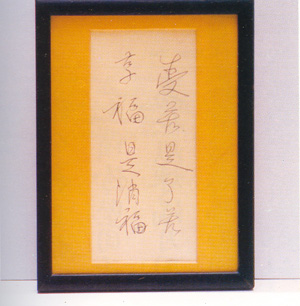 受苦是了苦
享福是消福